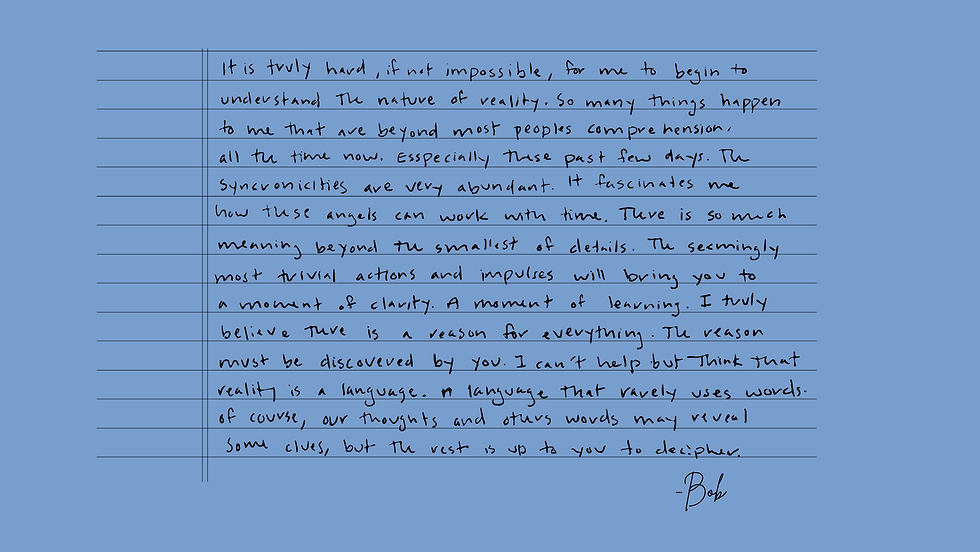 It is truly hard, if not impossible, for me to begin to
understand The nature of reality. So many things happen
to me that are beyond most peoples comprehension,
all the time now. Esspecially these past few days. The
syncronicities are very abundant. It fascinates me
how these angels can work with time. There is so much
meaning beyond the smallest of details. The seemingly
most trivial actions and impulses will bring you to
a moment of clarity. A moment of learning. I truly
believe There is a reason for everything. The reason
must be discovered by you. I can't help but Think that
reality is a language. A language that rarely uses words.
of course, our thoughts and others words may reveal
some clues, but The rest is up to you to decipher.
-Bob